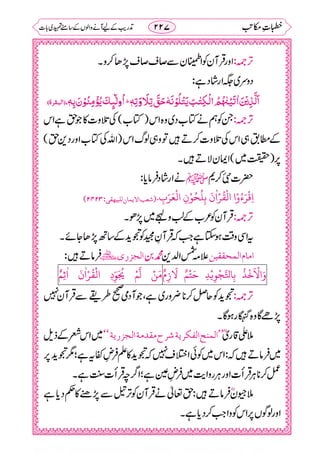 خطباتِ مکاتب ۲۲۷ تدریب کے لیے آنے والوں کے سامنے تمہیدی بات
ترجمہ: اور قرآن کو اطمینان سے صاف صاف پڑھا کرو۔
دوسری جگہ ارشاد ہے:
اَلَّذِیْنَ اٰتَیْنٰهُمُ الْكِتٰبَ یَتْلُوْنَهٗ حَقَّ تِلَاوَتِهٖ ؕ اُولٰٓىِٕكَ یُؤْمِنُوْنَ بِهٖ. (البقرة)
ترجمہ: جن کو ہم نے کتاب دی وہ اس (کتاب) کی تلاوت کا جو حق ہے اس
کے مطابق ہی اس کی تلاوت کرتے ہیں تو وہی لوگ اس (اللہ کی کتاب اور دین حق)
پر (حقیقت میں) ایمان لاتے ہیں۔
حضرت نبی کریم ﷺ نے ارشاد فرمایا:
اِقْرَءُوا الْقُرْاٰنَ بِلُحُوْنِ الْعَرَبِ. (شعب الایمان للبیھقی: ۲۴۲۳)
ترجمہ: قرآن کو عرب کے لب و لہجے میں پڑھو۔
یہ اسی وقت ہو سکتا ہے جب کہ قرآن مجید کو تجوید کے ساتھ پڑھا جائے۔
امام المحققین علامہ شمس الدین محمد بن الجزری فرماتے ہیں:
وَالْاَخْذُ بِالتَّجْوِیْدِ حَتْمٌ لَازِمُ مَنْ لَمْ یُجَوِّدِ الْقُرْاٰنَ اٰثِمُ
ترجمہ: تجوید کو حاصل کرنا ضروری ہے، جو آدمی صحیح طریقے سے قرآن نہیں
پڑھے گا وہ گنہگار ہوگا۔
ملا علی قاری ”المنح الفکریة شرح مقدمة الجزریة“ میں اس شعر کے ذیل
میں فرماتے ہیں کہ: اس میں کوئی اختلاف نہیں کہ تجوید کا علم فرض کفایہ ہے؛ مگر تجوید پر
عمل کرنا ہر قرأت اور ہر روایت میں فرض عین ہے؛ اگرچہ قرأت سنت ہے۔
ملا جیون فرماتے ہیں: حق تعالیٰ نے قرآن کو ترتیل سے پڑھنے کا حکم دیا ہے
اور لوگوں پر اس کو واجب کر دیا ہے۔